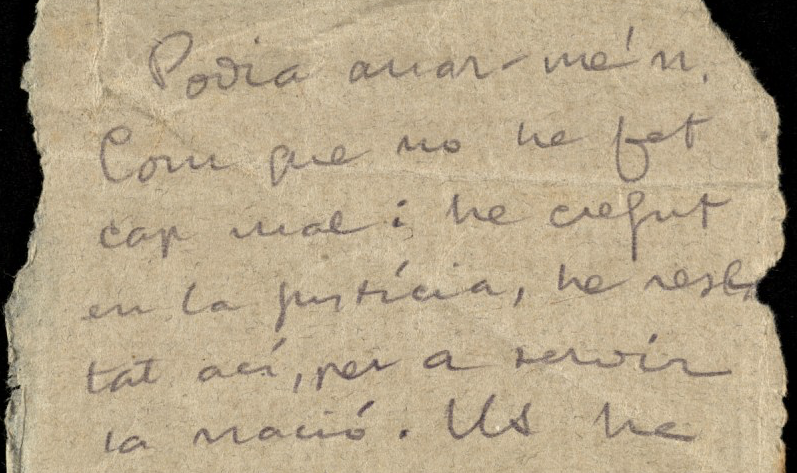 Podia anar-me'n.
Com que no he fet
cap mal i he cregut
en la justícia, he res-
tat ací, per a servir
la nació. Us he